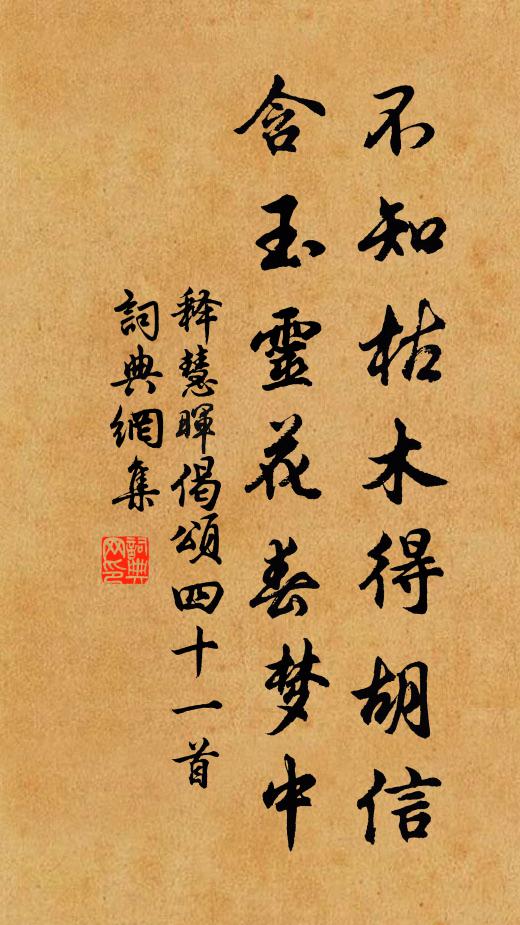 不知枯木得胡信
含玉靈花春梦中
释慧暉偈頌四十一首
詞典網集
詞典网印